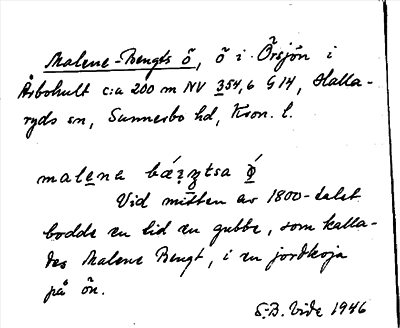 Malene-Bengts ö, ö i Örsjön i
Årbohult c:a 200 m NV 354,6 G 14, Halla-
ryds sn, Sunnerbo hd, Kron. l.
malena
Vid mitten av 1800-talet
bodde en tid en gubbe, som kalla-
des Malene Bengt, i en jordkoja
på ön.
S.-B. Vide 1946